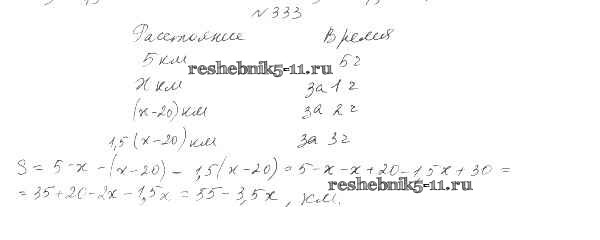 N 333
Расстояние Время
5 км 5 ч
х км за 1 ч
(х-20) км за 2 ч
1,5(х-20) км за 3 ч
S = 5-х-(х-20)-1,5(х-20)=5-х-х+20-1,5х+30=
=35+20-2х-1,5х=55-3,5х, км.
reshebnik5-11.ru
reshebnik5-11.ru